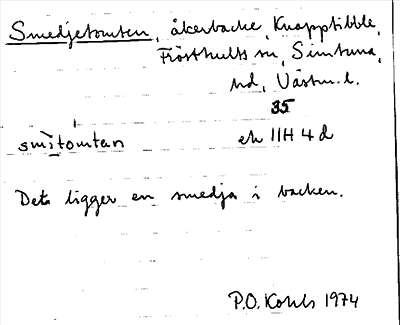 Smedjetomten, åkerbacke, Knapptibble,
Frösthults sn, Simtuna
hd, Västm. l.
35
smitòmtan ek 11H 4d
Det ligger en smedja i backen.
P.O. Kohls 1974